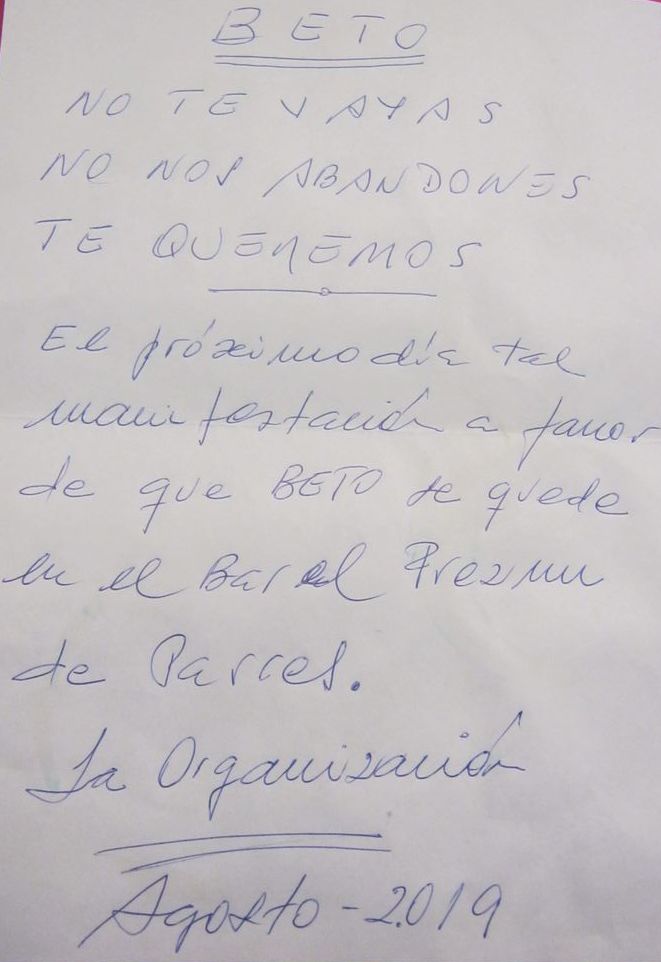 BETO
NO TE VAYAS
NO NOS ABANDONES
TE QUEREMOS
El próximo día tal
manifestación a favor
de que BETO se quede
en el Bar el Preznu
de Parres.
La Organización
Agosto - 2.019